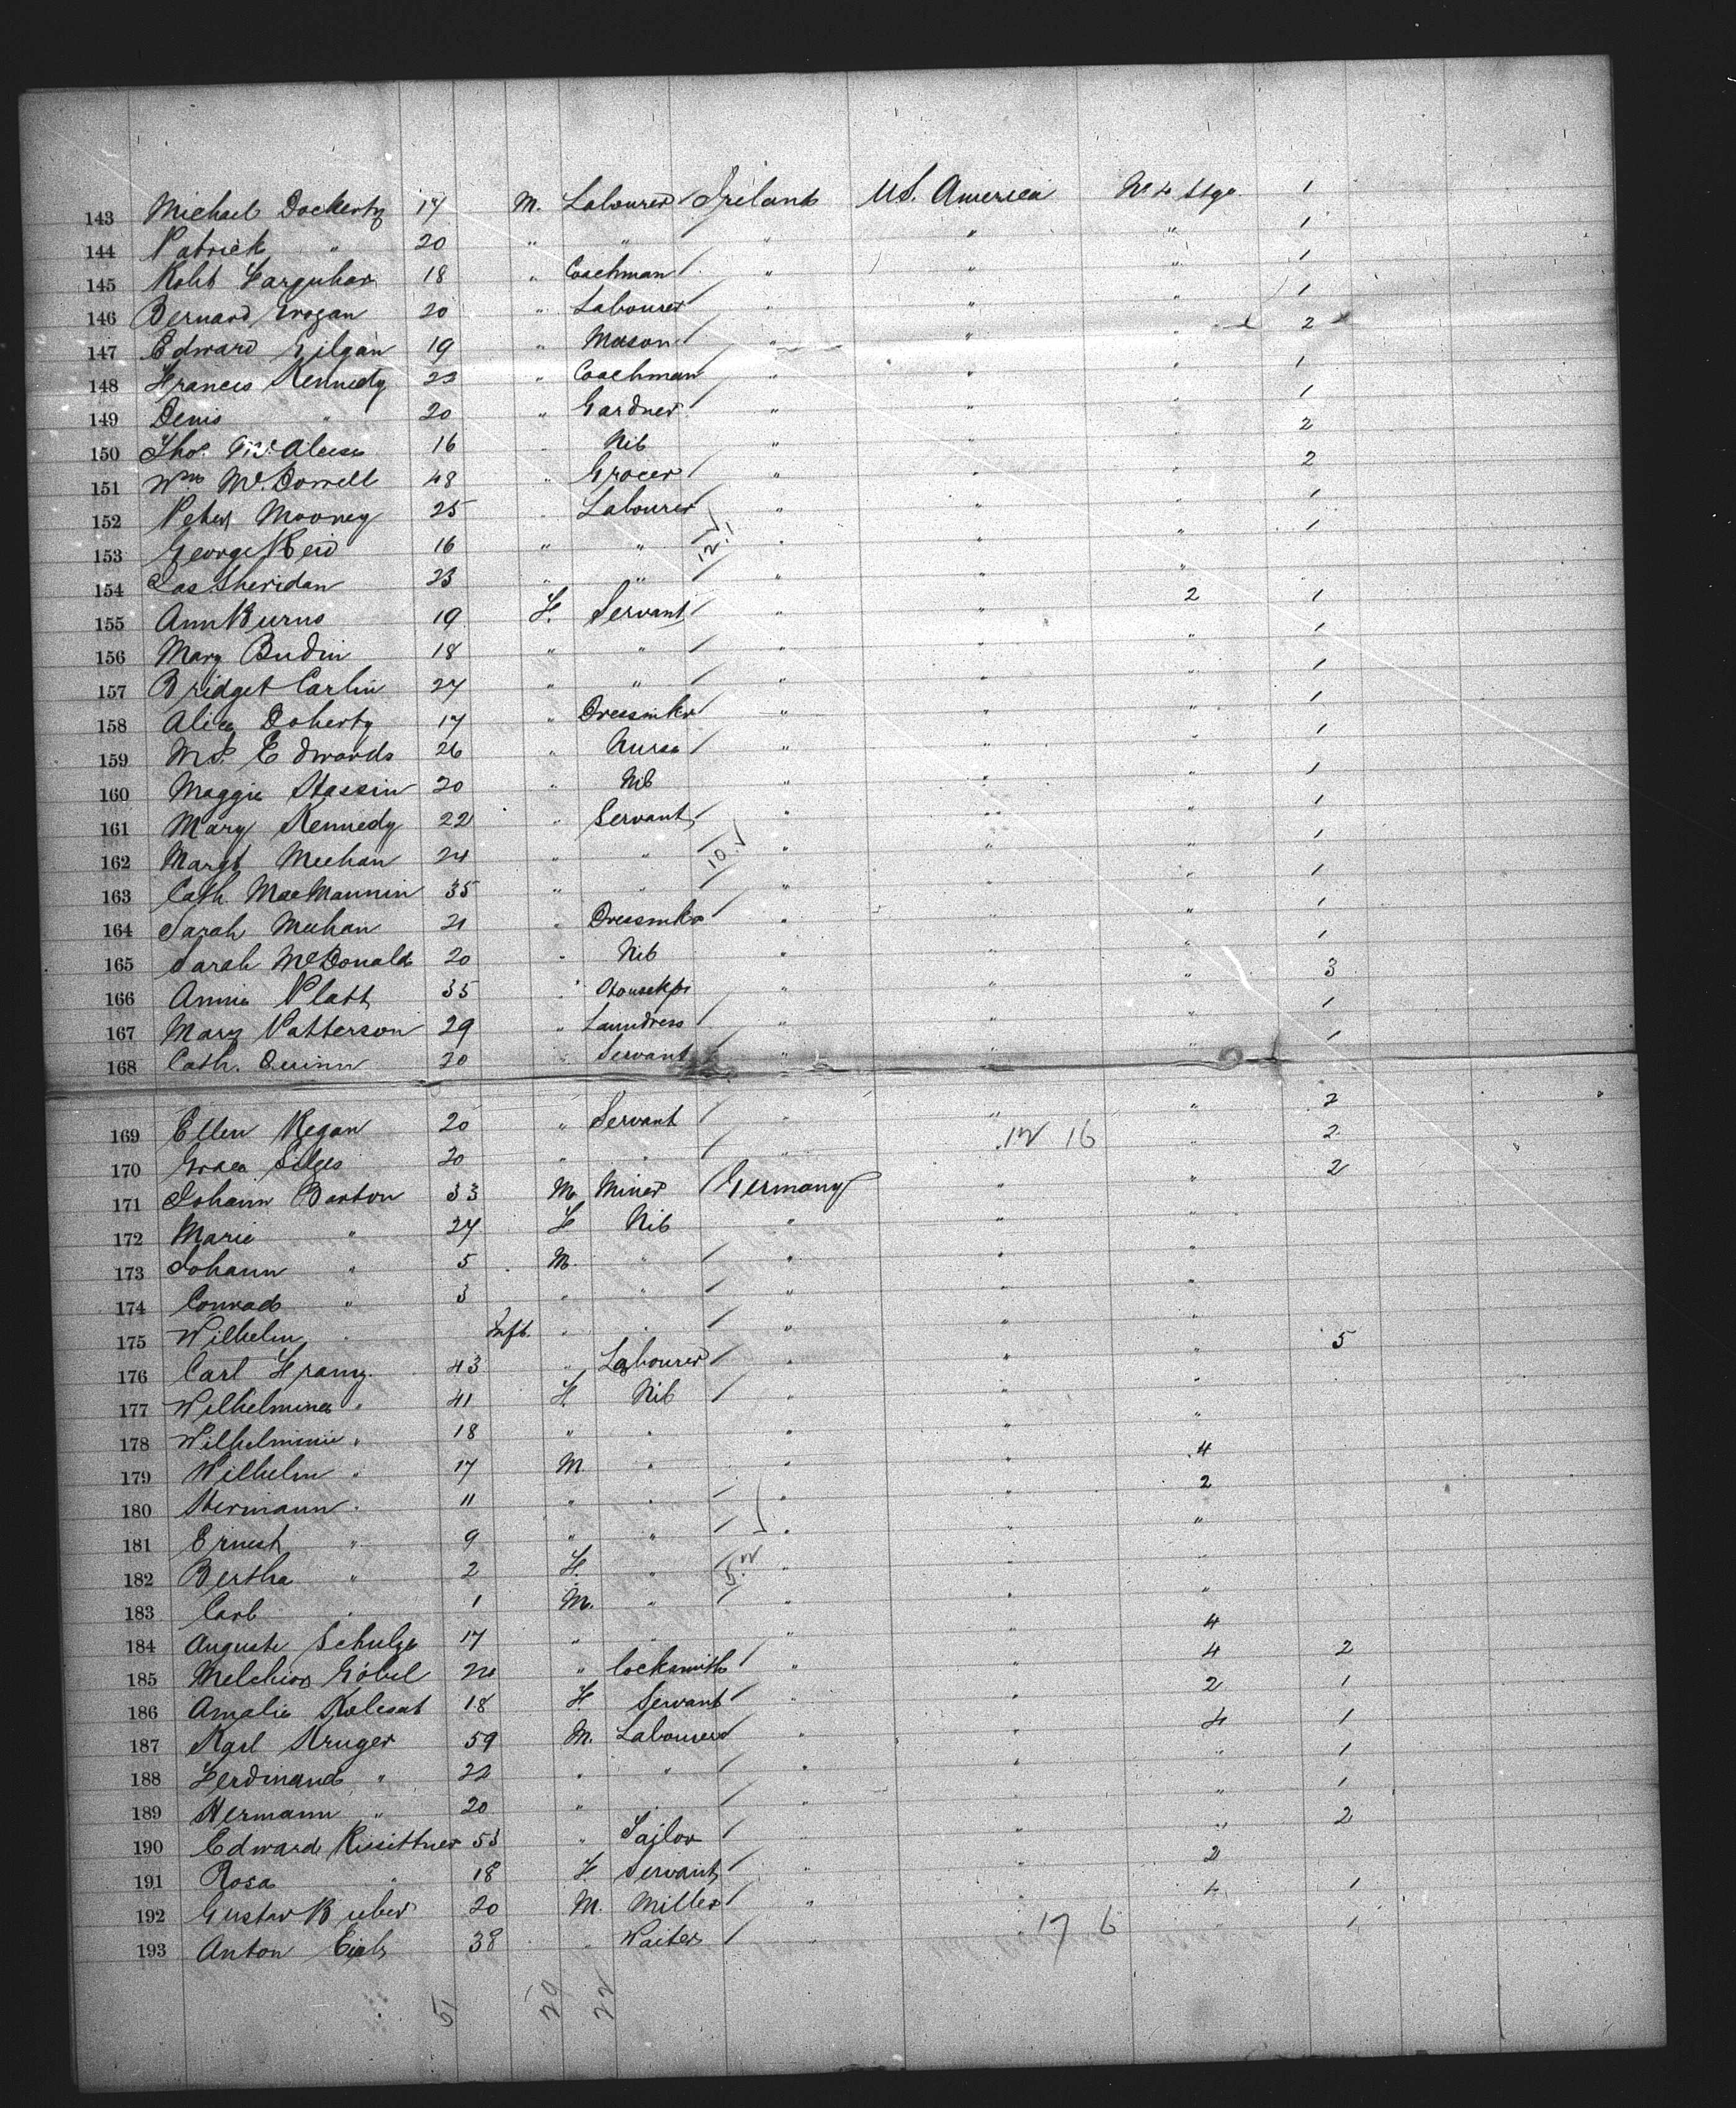 143 Michael Dockerty 17 M. Labourer Ireland U.S. America No 4 Stge 1
144 Patrick " 20 " " " " " 1
145 Robt Farquhar 18 " Coachman " " " 1
146 Bernard Grogan 20 " Labourer " " " 1
147 Edward Gilgan 19 " Mason " " " 2
148 Francis Kennedy 23 " Coachman " " " 1
149 Denis " 20 " Gardner " " " 1
150 Thos. McAleese 16 " Nil " " " 2
151 Wm McDowell 48 " Grocer " " " 2
152 Peter Mooney 25 " Labourer " " " 1
153 George Reid 16 " " " " " 1
12
154 Jas Sheridan 23 " " " " "
155 Ann Burns 19 F. Servant " " 2 1
156 Mary Budin 18 " " " " " 1
157 Bridget Carlin 27 " " " " " 1
158 Alice Doherty 17 " Dressmkr " " " 1
159 M.S. Edwards 26 " Nurse " " " 1
160 Maggie Hassin 20 " Nil " " " 1
161 Mary Kennedy 22 " Servant " " " 1
162 Margt Meehan 24 " " " " " 1
10
163 Cath. MacMannin 35 " " " " " 1
164 Sarah Meehan 21 " Dressmkr " " " 1
165 Sarah McDonald 20 " Nil " " " 1
166 Annie Platt 35 " Housekpr " " " 3
167 Mary Patterson 29 " Laundress " " " 1
168 Cath. Quinn 20 " Servant " " " 1
169 Ellen Regan 20 " Servant " " " 2
12 16
170 Grace 20 " " " " 2
171 Johann Barton 33 M. Miner Germany " " 2
172 Marie " 27 F Nil " " "
173 Johann " 5 M. " " " "
174 Conrad " 3 " " " " "
175 Wilhelm " Inft. " " " " "
176 Carl Franz 43 " Labourer " " " 5
177 Wilhelmina " 41 F. Nil " " "
178 Wilhelmine " 18 " " " " "
179 Wilhelm " 17 M " " " 4
180 Hermann " 11 " " " " 2
181 Ernest " 9 " " " " "
182 Bertha " 2 F. " " " "
5
183 Carl " 1 M. " " " "
184 Auguste Schulze 17 " " " " 4
185 Melchior Göbel 24 " Locksmith " " 4 2
186 Amalie Kolesat 18 F Servant " " 2 1
187 Karl Kruger 59 M. Labourer " " 4 1
188 Ferdinand " 22 " " " " " 1
189 Hermann " 20 " " " " " 1
190 Edward 53 " Tailor " " " 2
191 Rosa " 18 F. Servant " " 2
192 Gustav 20 M. Miller " " 4 1
193 Anton 38 " Waiter " " 1
17 6
51 29 22